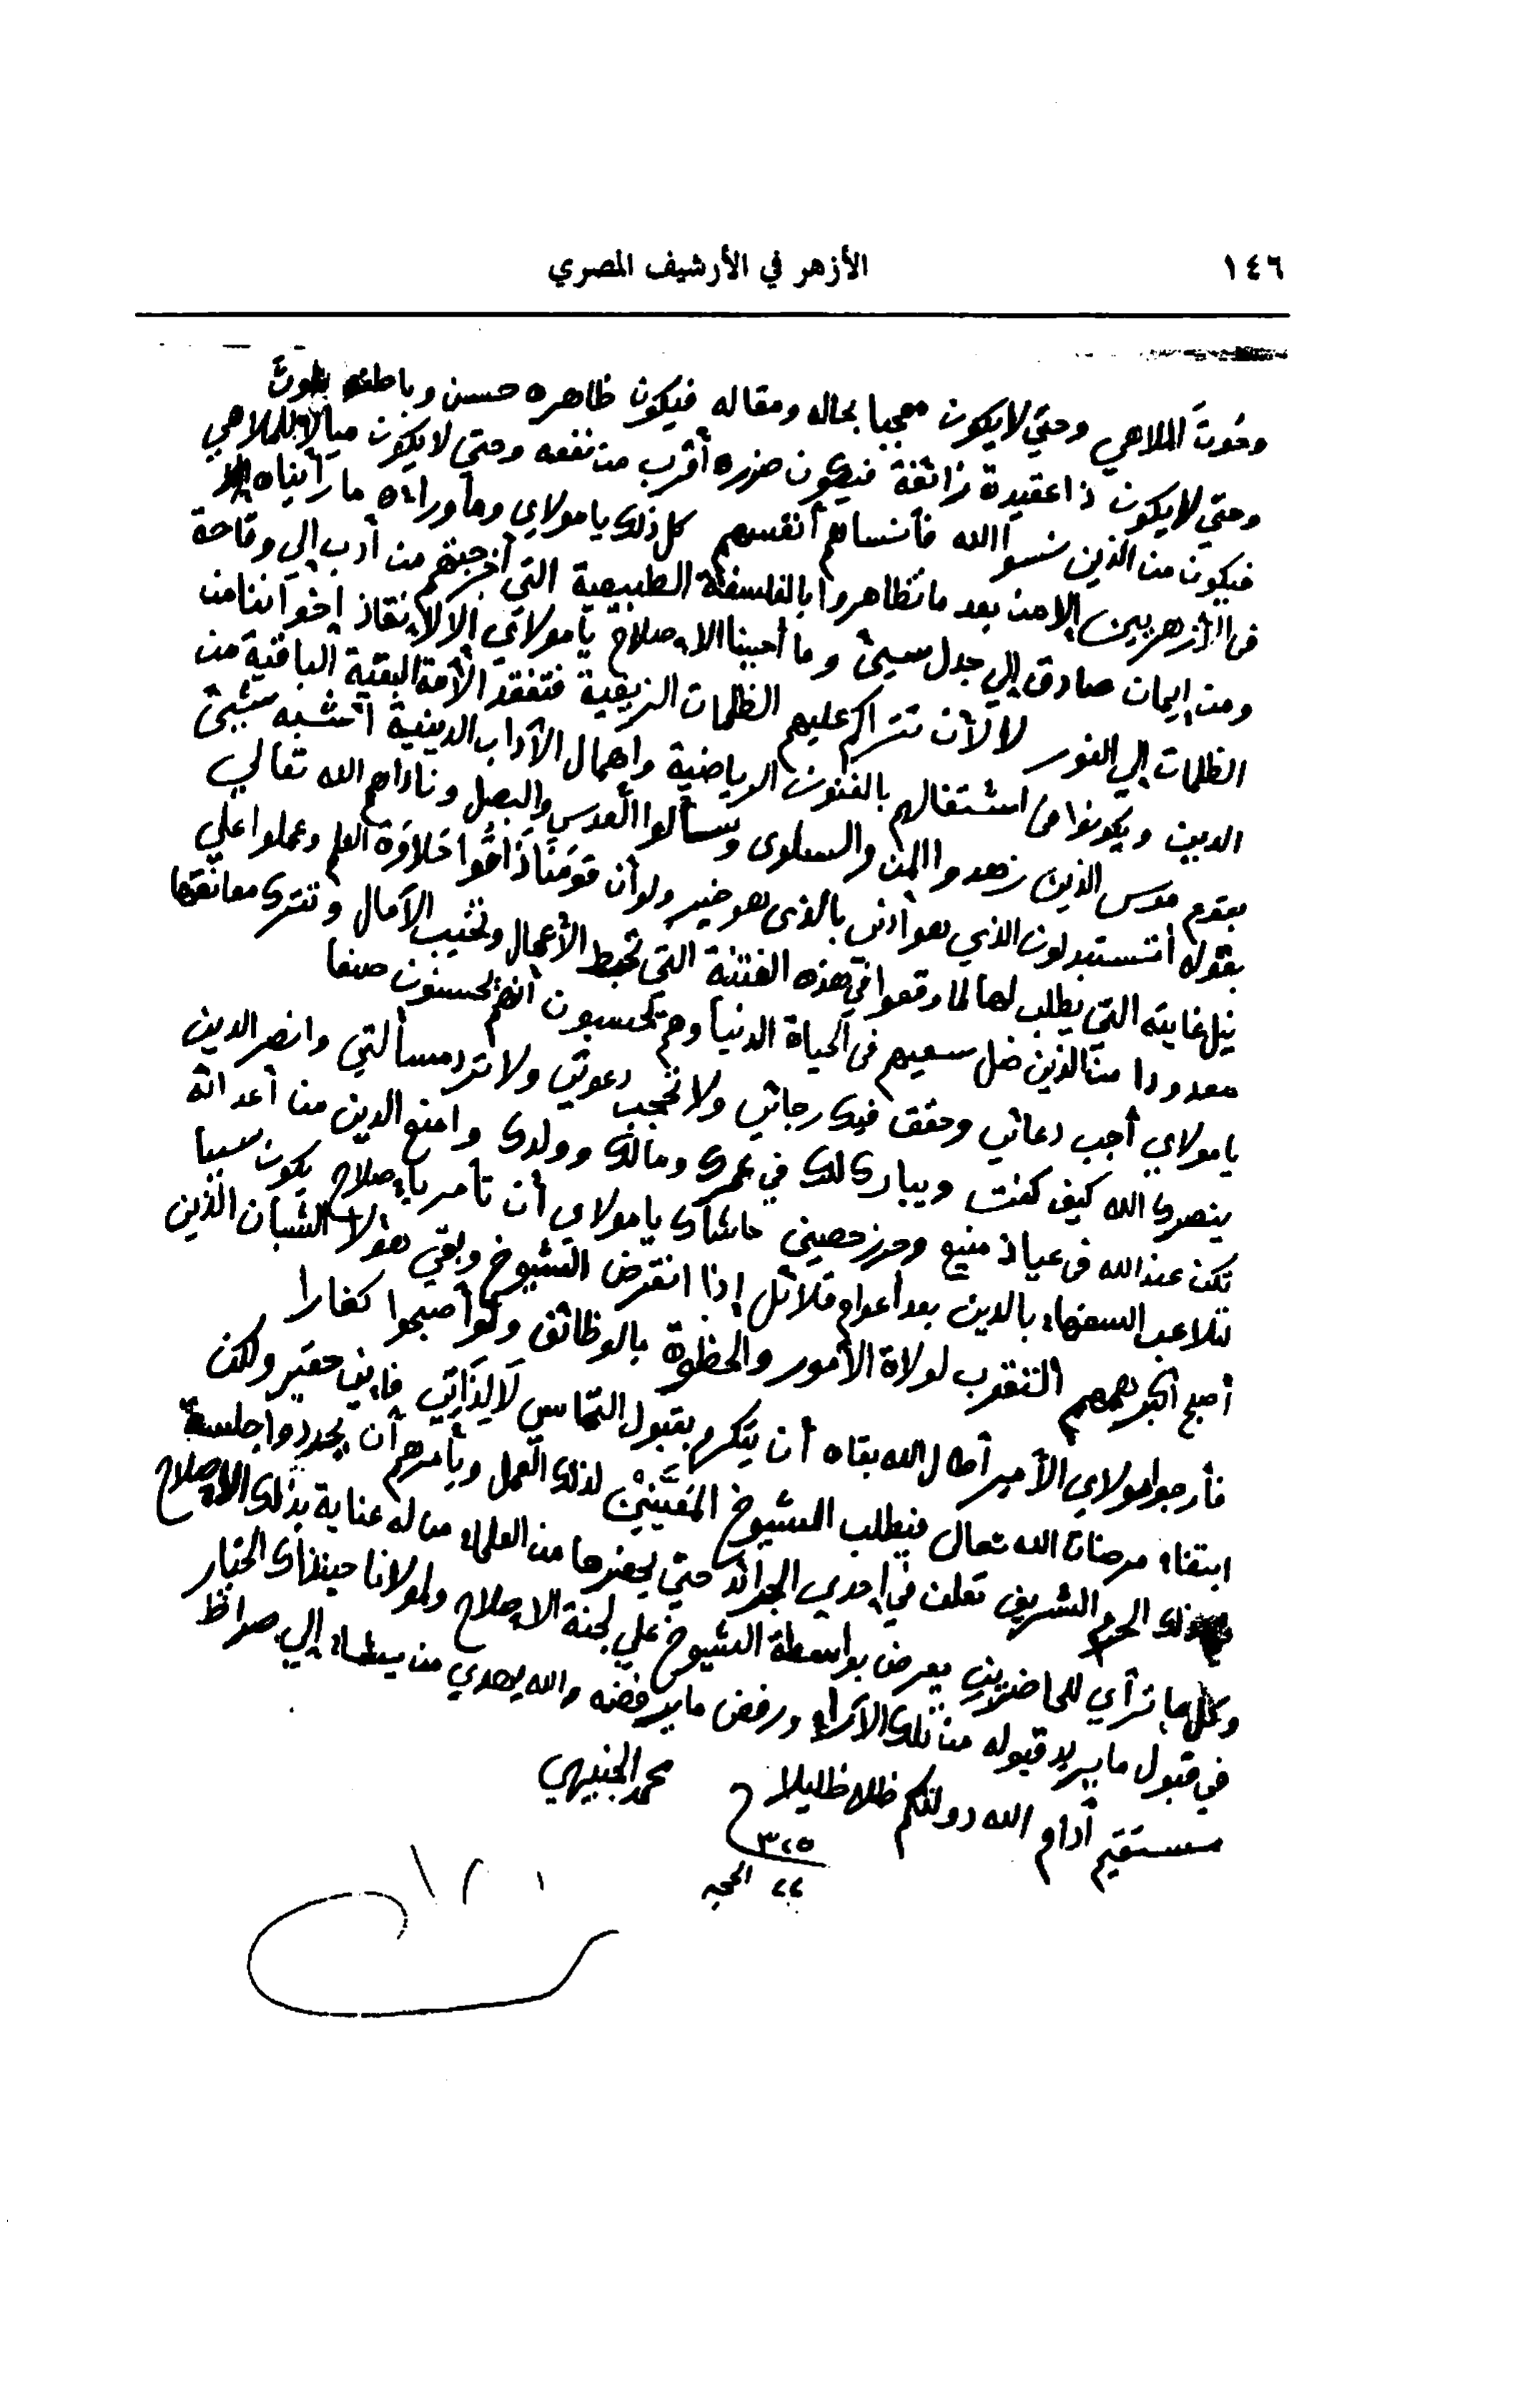 ١٤٦
الأزهر في الأرشيف المصري
وحتى لا يكون معجبا بحاله ومقاله فيكون ظاهره حسن وباطنه
وحتى لا يكون ذا عقيدة زائغة فيكون ضرره أقرب من نفعه وحتى لا يكون ميالا للملاهي
فيكون من الذين نسوا الله فأنساهم أنفسهم كل ذلك يا مولاي وما وراءه ما رأيناه
في الأزهريين إلا من بعد ما تظاهروا بالفلسفة الطبيعية التي أخرجتهم من أدب إلى وقاحة
ومن إيمان صادق إلى جدل سيئ وما أحببنا الإصلاح يا مولاي إلا لإنقاذ إخواننا من
الظلمات إلى النور لا لأن تتراكم عليهم الظلمات الزيغية فتفقد الأمة البقية الباقية من
الدين ويكونوا في اشتغالهم بالفنون الرياضية وإهمال الآداب الدينية أشبه شيئ
بقوم موسى الذين زهدوا المن والسلوى وسألوا العدس والبصل وناداهم الله تعالى
بقوله أتستبدلون الذي هو أدنى بالذى هو خير ولو أن قومنا ذاقوا حلاوة العلم وعملوا على
نيل غايته التي يطلب لها لما وقعوا في هذه الفتنة التي تحبط الأعمال وتخيب الآمال وتترك معانقها
معدودا من الذين ضل سعيهم في الحياة الدنيا وهم يحسبون أنهم يحسنون صنعا
يا مولاي أجب دعائي وحقق فيك رجائي ولا تحجب دعوتي ولا ترد مسألتي وانصر الدين
ينصرك الله كيف كنت ويبارك لك في عمرك ومالك وولدك وامنع الدين من أعدائه
تكن عند الله في عياذ منيع وحرز حصين حاشاك يا مولاي أن تأمر بإصلاح يكون سببا
لتلاعب السفهاء بالدين بعد أعوام قلائل إذا انقرض الشيوخ وبقي هؤلاء الشبان الذين
أصبح أكبر همهم التقرب لولاة الأمور والحظوة بالوظائف ولو أصبحوا كفارا
فأرجوا مولاي الأمير أطال الله بقاه أن يتكرم بقبول التماسي لا لذاتي فإني حقير ولكن
ابتغاء مرضات الله تعالى فيطلب الشيوخ المعينين لذلك العمل ويأمرهم أن يجددوا جلسة
بذلك الحرم الشريف تعلن في إحدى الجرائد حتى يحضرها من العلماء من له عناية بذلك الإصلاح
وكل ما ترآي للحاضرين يعرض بواسطة الشيوخ على لجنة الإصلاح ولمولانا حينذاك الخيار
في قبول ما يريد قبوله من تلك الآراء ورفض ما يرفضه والله يهدي من يشاء إلى صراط
مستقيم أدام الله دولتكم ظلا ظليلا
محمد الجنبيهي
٣٢٥
٢٢ الحجه